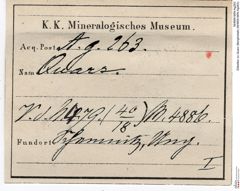 K. K. Mineralogisches Museum.
Acq. Post A. g. 263.
Nam Quarz.
(40/18) M. 4886.
Fundort Schemnitz, Ung.
I